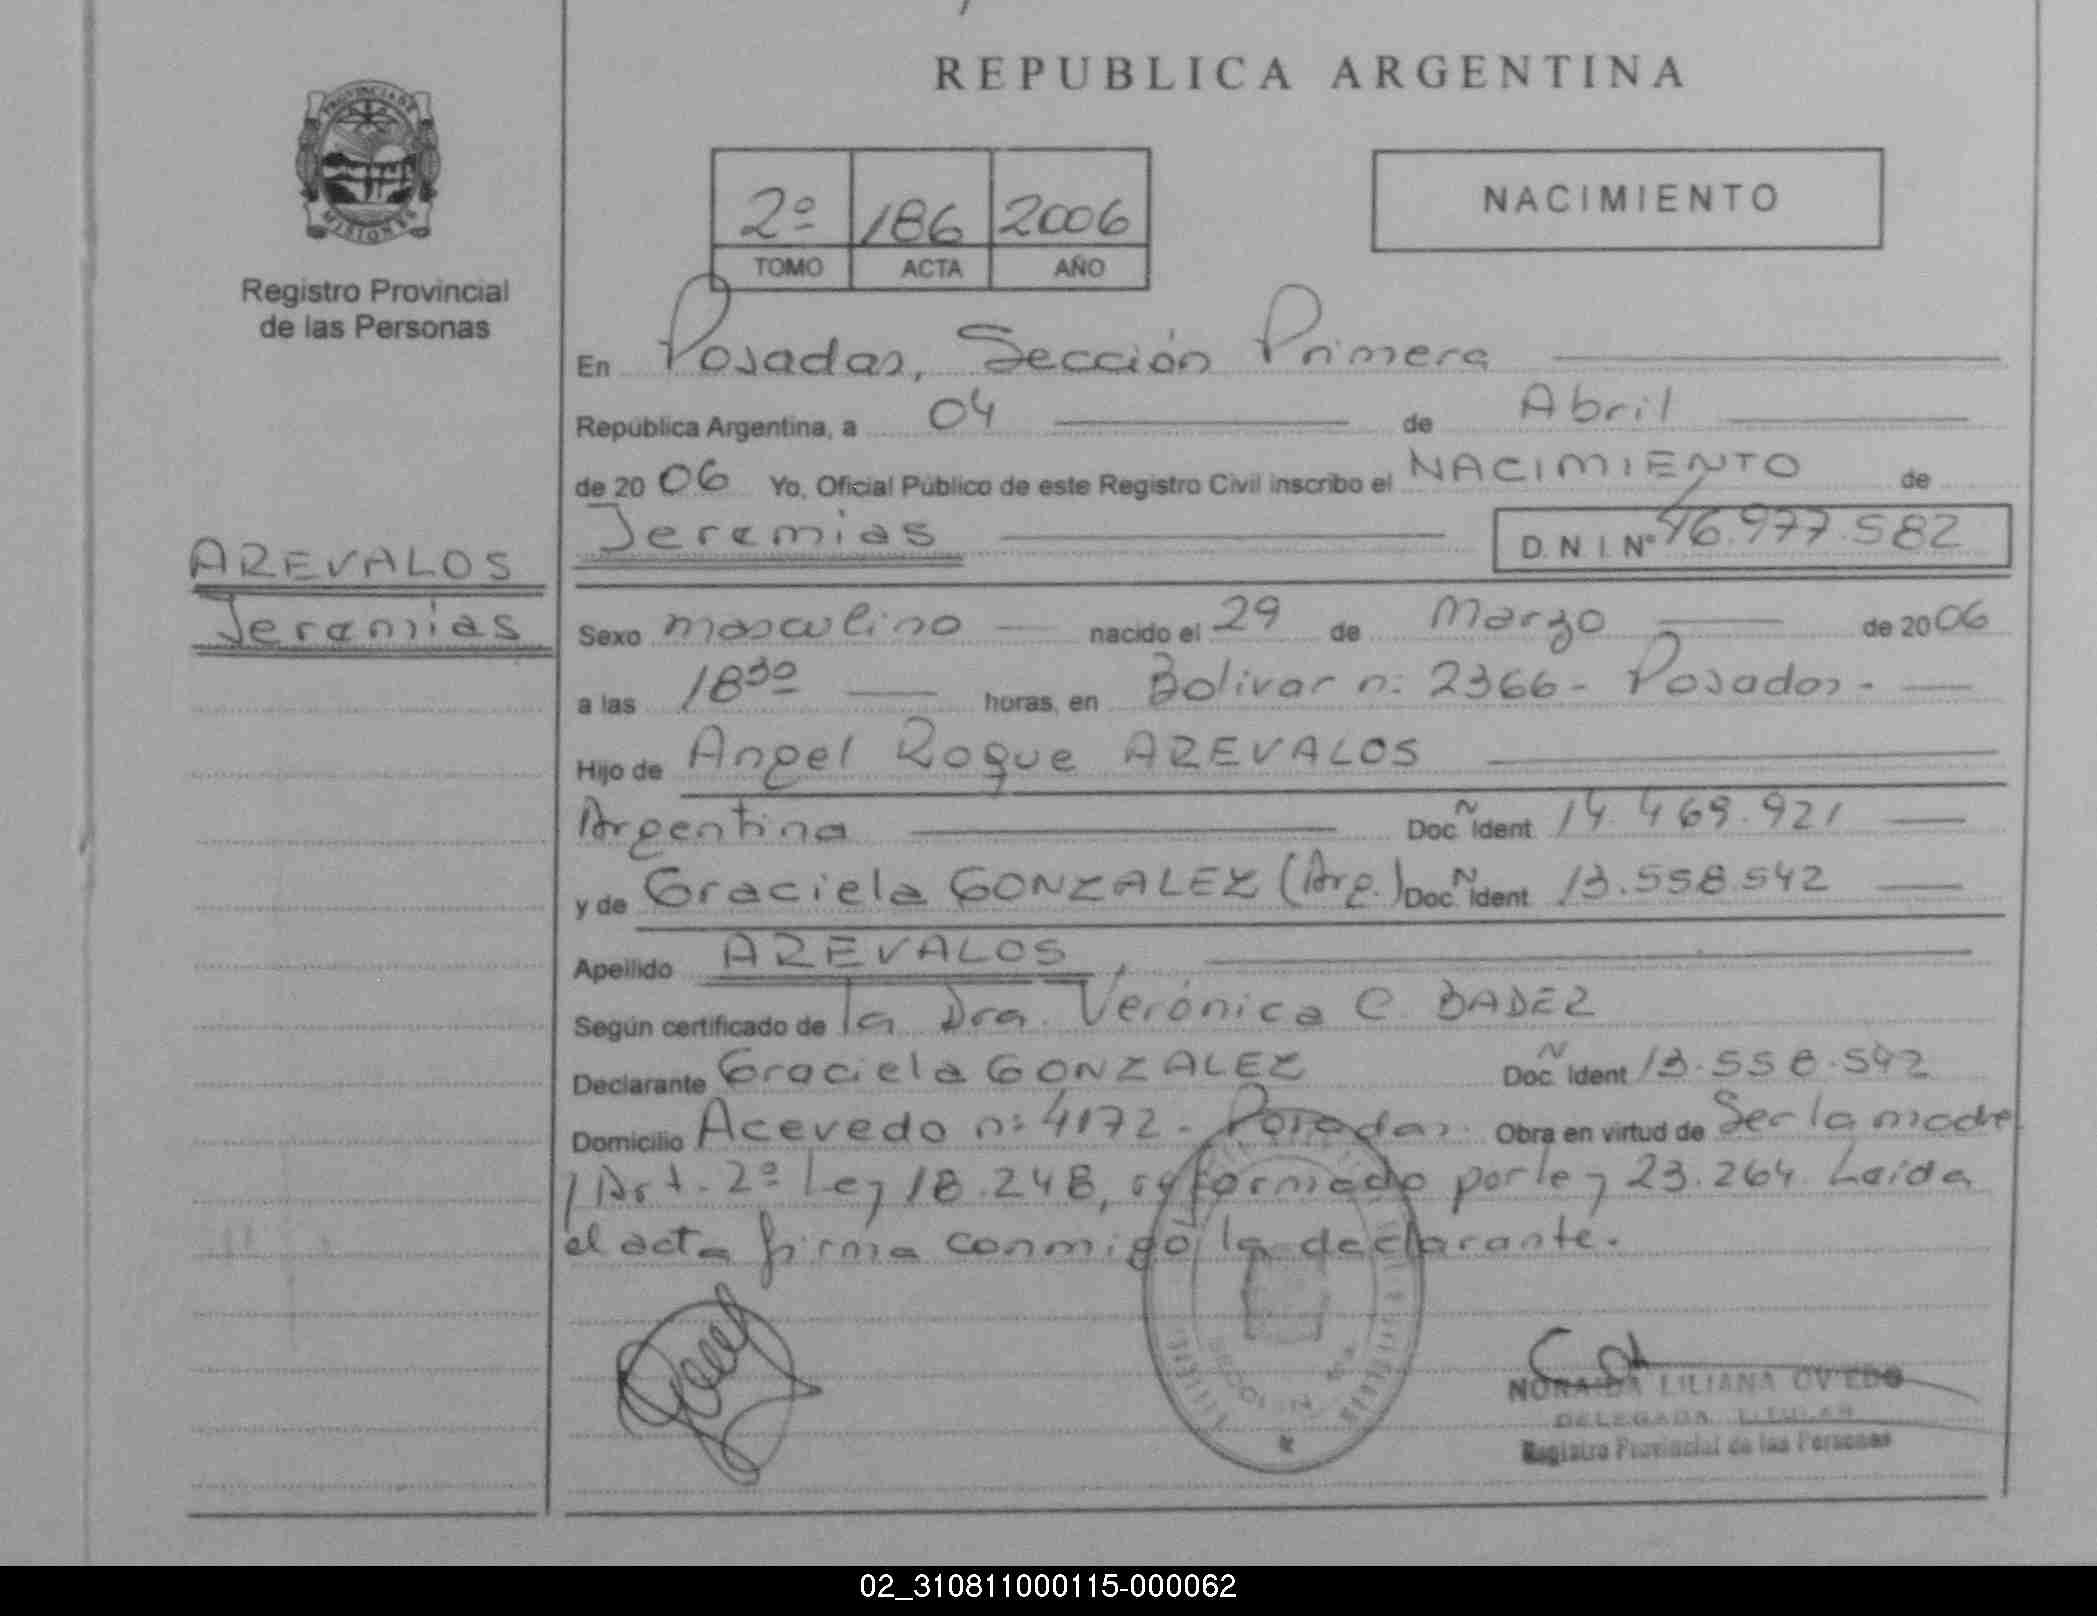 REPUBLICA ARGENTINA
PROVINCIA DE MISIONES
Registro Provincial
de las Personas
2º 186 2006
TOMO ACTA AÑO
NACIMIENTO
En Posadas, Sección Primera
República Argentina, a 04 de Abril
de 20 06 Yo, Oficial Público de este Registro Civil inscribo el NACIMIENTO de
Jeremias D.N.I. Nº 46.977.582
AREVALOS
Jeremias
Sexo masculino nacido el 29 de Marzo de 20 06
a las 18 30 horas, en Bolivar n: 2366 - Posadas -
Hijo de Angel Roque AREVALOS
Argentina Doc. Ident. 14.469.921
y de Graciela GONZALEZ (Arg.) Doc. Ident. 13.558.542
Apellido AREVALOS,
Según certificado de la Dra. Verónica C. BADER
Declarante Graciela GONZALEZ Doc. Ident 13.558.542
Domicilio Acevedo n: 4172 - Posadas. Obra en virtud de Ser la madre
Art. 2º Ley 18.248, reformado por ley 23.264. Leida
el acta firma conmigo la declarante.
NORAIDA LILIANA OVIEDO
DELEGADA TITULAR
Registro Provincial de las Personas
02_310811000115-000062